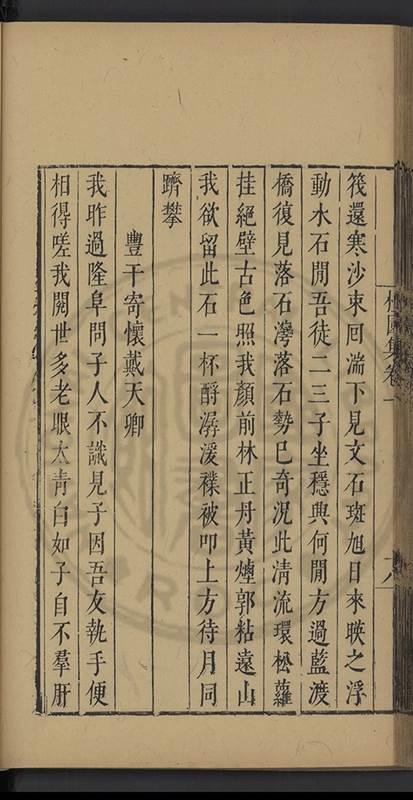 筏還寒沙束回湍下見文石斑旭日來映之浮
動水石間吾徒二三子坐穩典何閒方過藍渡
橋復見落石灣落石勢已奇況此清流環松蘿
挂絕壁古色照我顏前林正丹黃煙郭粘遠山
我欲留此石一杯酹潺湲襆被叩上方待月同
躋攀
豐干寄懷戴天卿
我昨過隆阜問子人不識見子因吾友執手便
相得嗟我閱世多老眼太青白如子自不羣肝
集卷一